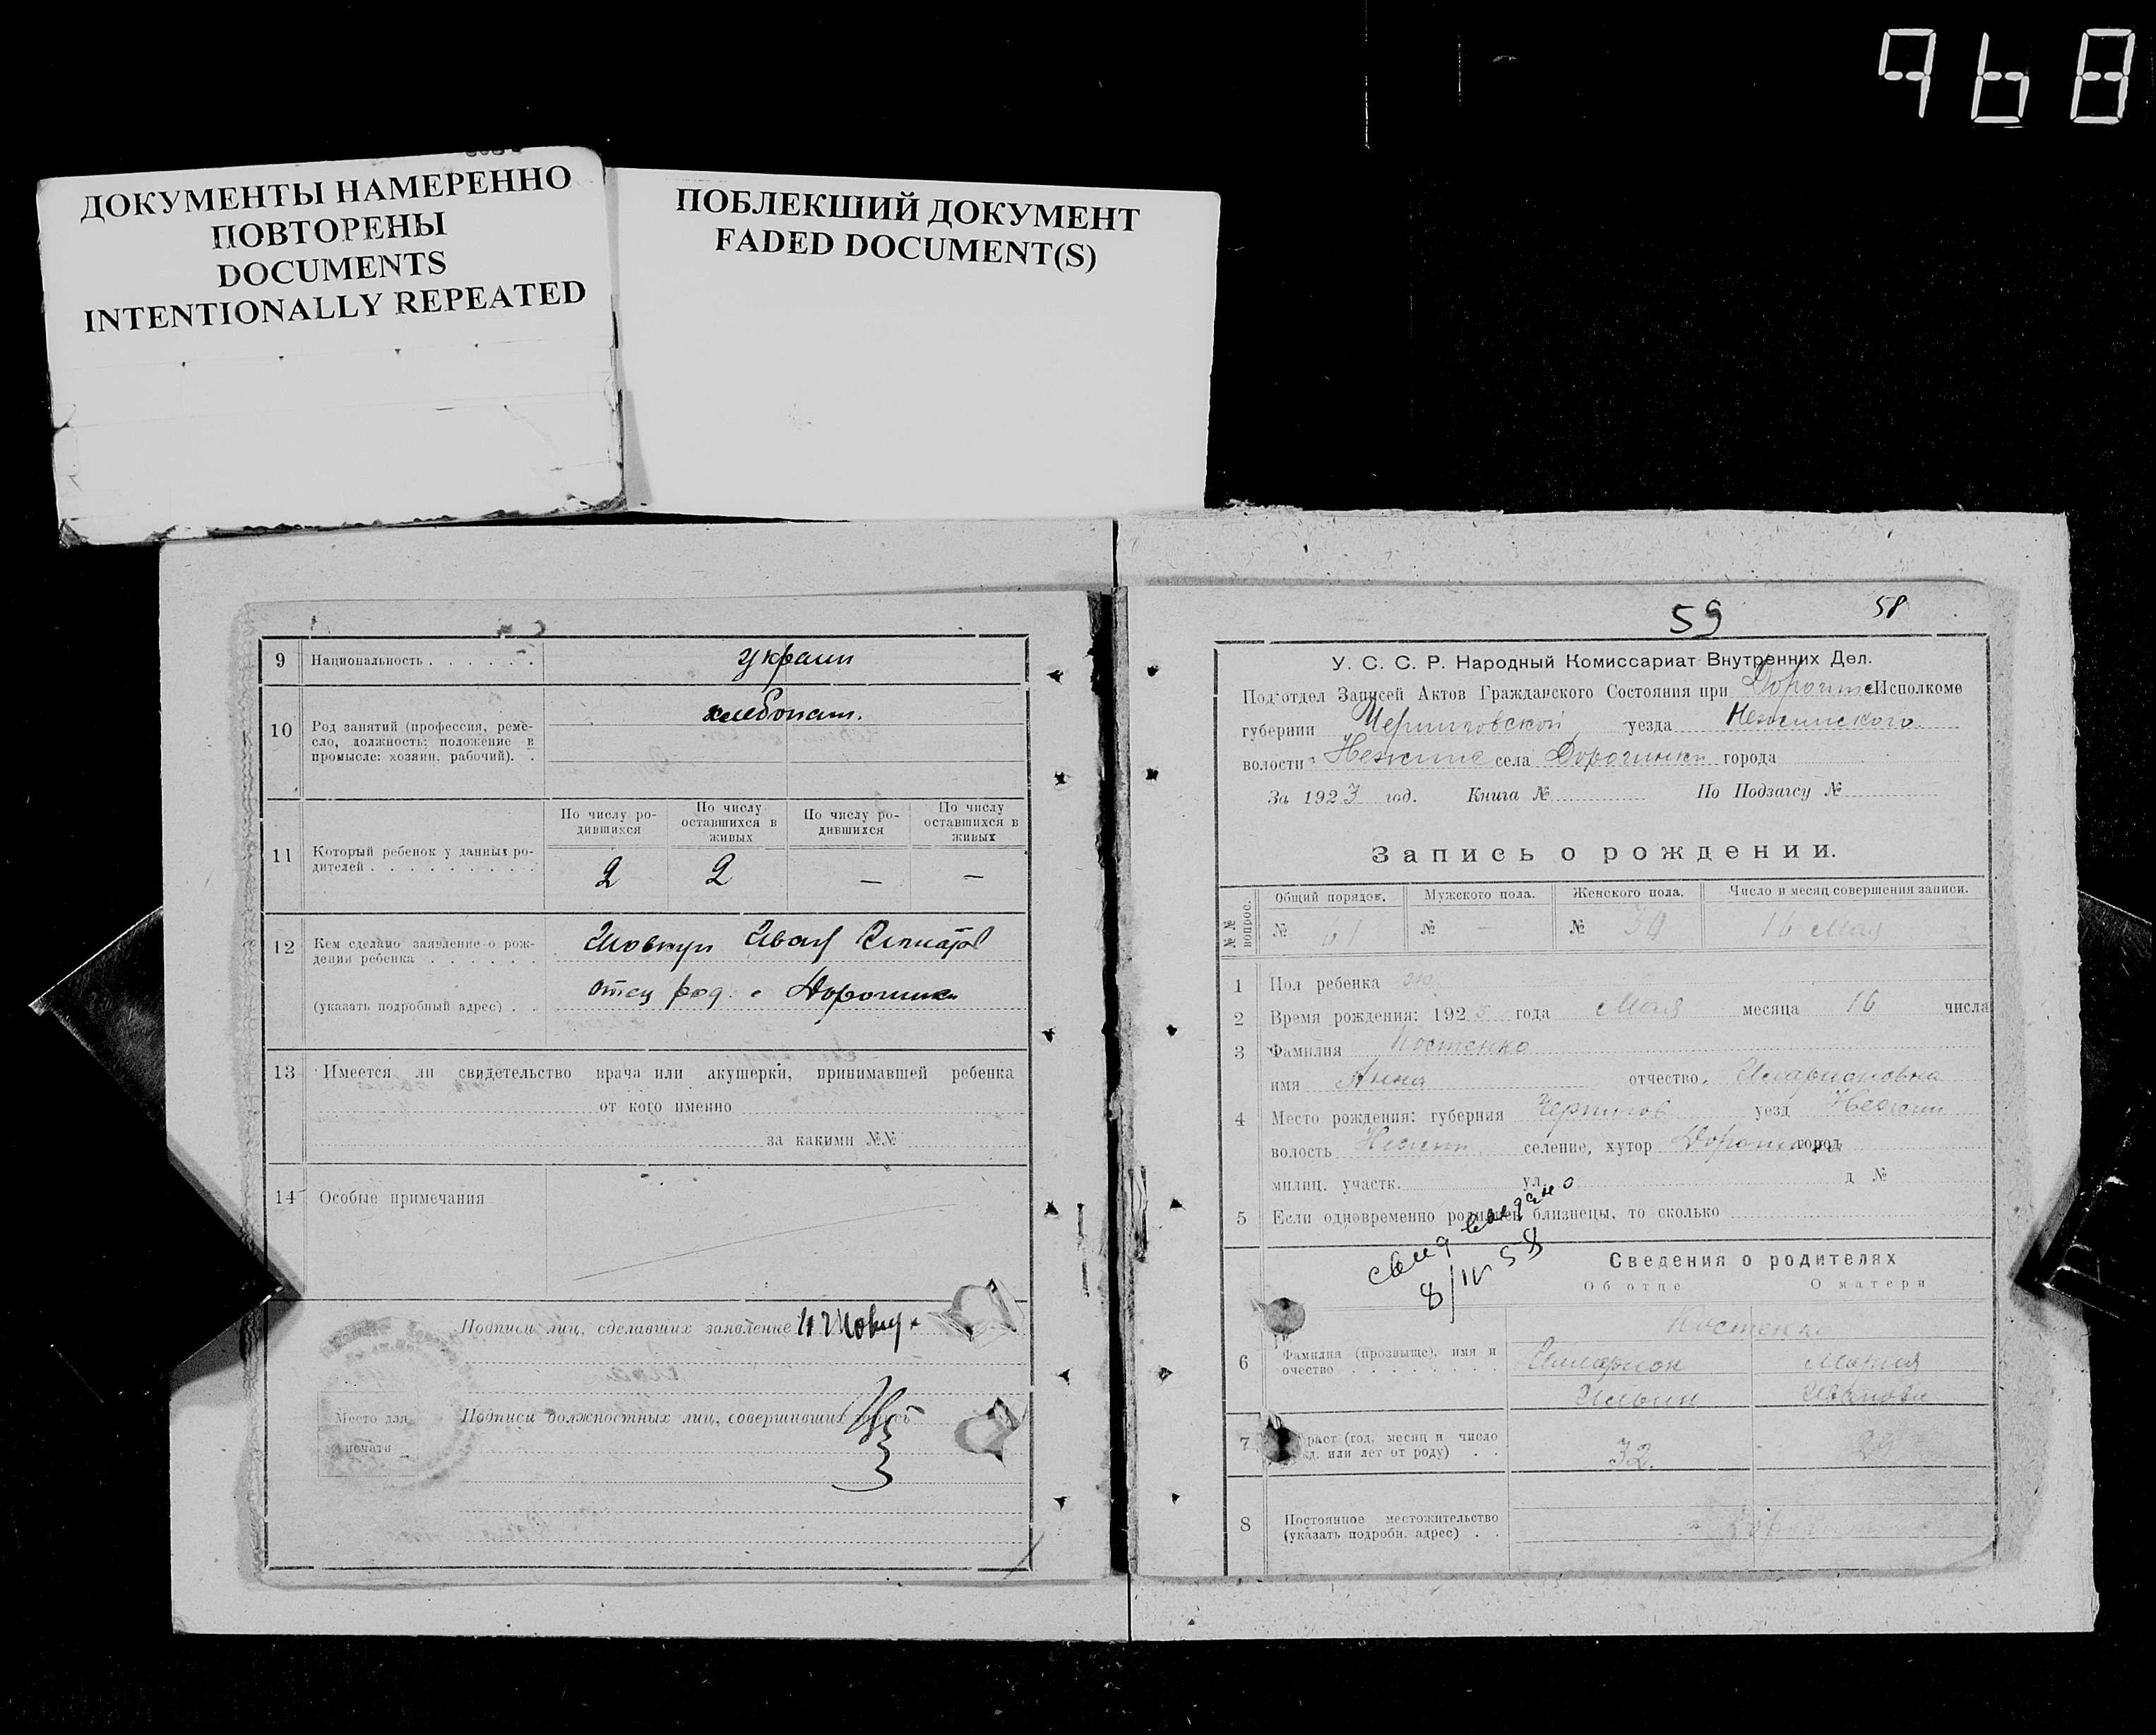 968
ДОКУМЕНТЫ НАМЕРЕННО
ПОВТОРЕНЫ
DOCUMENTS
INTENTIONALLY REPEATED
ПОБЛЕКШИЙ ДОКУМЕНТ
FADED DOCUMENT(S)
9 Национальность украин
10 Род занятий (профессия, реме-
сло, должность; положение в
промысле: хозяин, рабочий).
хлебопаш.
11 Который ребенок у данных ро-
дителей
По числу ро-
дившихся
По числу
оставшихся в
живых
По числу ро-
дившихся
По числу
оставшихся в
живых
2 2 — —
12 Кем сделано заявление о рож-
дении ребенка
Шовкун Иван
(указать подробный адрес)
отец
13 Имеется ли свидетельство врача или акушерки, принимавшей ребенка
от кого именно
за какими №№
14 Особые примечания
Подписи лиц, сделавших заявление
Место для
печати
Подписи должностных лиц, совершивших запись
59 58
У. С. С. Р. Народный Комиссариат Внутренних Дел.
Под'отдел Записей Актов Гражданского Состояния при Исполкоме
губернии Черниговской уезда Нежинского
волости села Дорогинки города
За 1923 год. Книга № По Подзагсу №
Запись о рождении.
№№ вопрос.
Общий порядок. Мужского пола. Женского пола. Число и месяц совершения записи.
№ 61 № — № 16 Мая
1 Пол ребенка
2 Время рождения: 192 года Мая месяца 16 числа
3 Фамилия Костенко
имя Анна отчество Иларионовна
4 Место рождения: губерния Чернигов уезд Нежин
волость Нежин селение, хутор город
милиц. участк. ул. д №
5 Если одновременно родились близнецы, то сколько
свид выдано
8/IV 58
Сведения о родителях
Об отце О матери
6 Фамилия (прозвище), имя и
очество
Костенко
Илларион Мария
Ильин Иванова
7 Возраст (год, месяц и число
рожд. или лет от роду)
32. 29
8 Постоянное местожительство
(указать подробн. адрес)